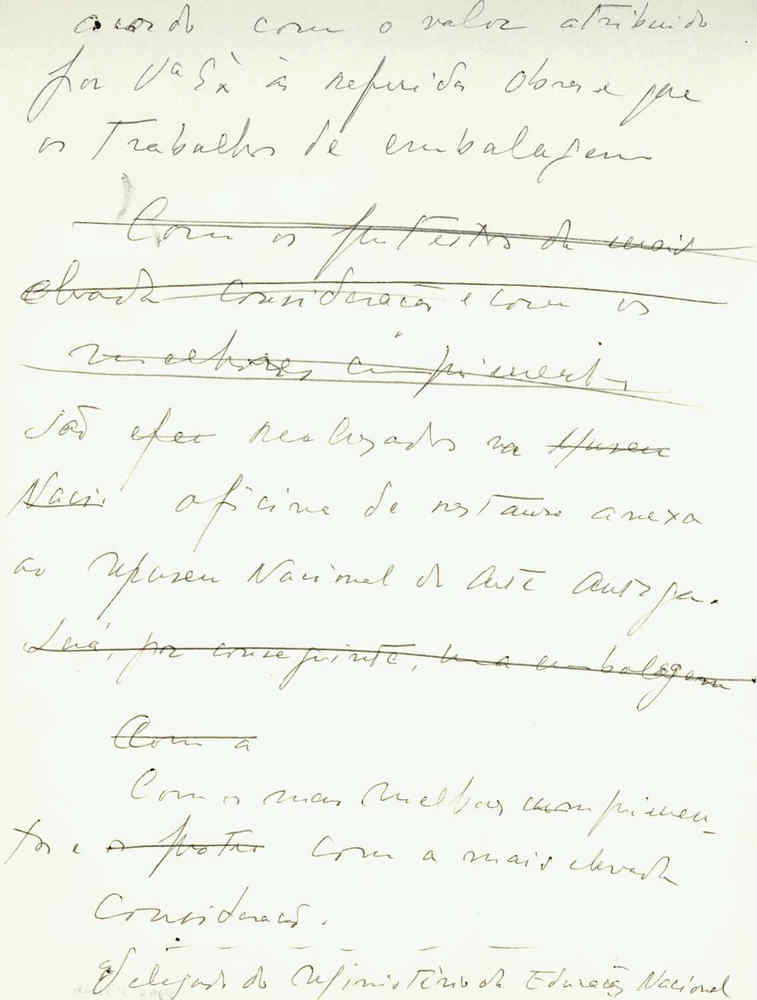 acordo com o valor atribuido
por Vª Exª às referidas obras e que
os trabalhos de embalagem
Com os protestos da mais
elevada consideração e com os
melhores cumprimentos
São efec realizados na Museu
Naci oficina de restauro anexa
ao Museu Nacional de Arte Antiga.
Será, por conseguinte, uma embalagem
Com a
Com os meus melhores cumprimen-
tos e os protes com a mais elevada
consideração.
Delegado do Ministério da Educação Nacional